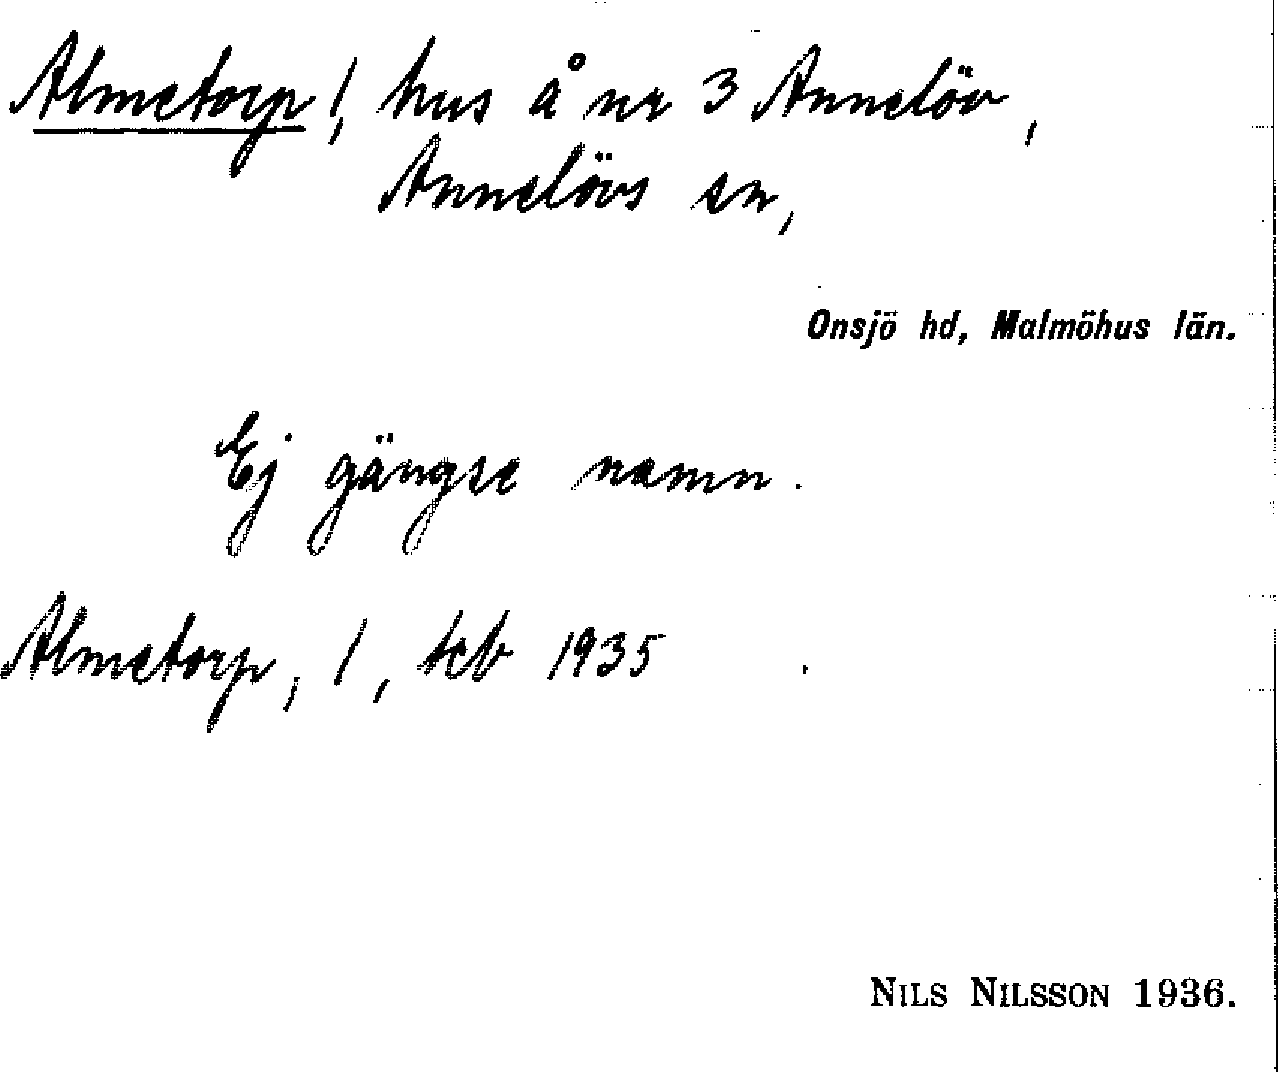 Almetorp 1, hus å nr 3 Annelöv,
Annelövs sn,
Onsjö hd, Malmöhus län.
Ej gängse namn.
Almetorp, 1, tcb 1935
NILS NILSSON 1936.